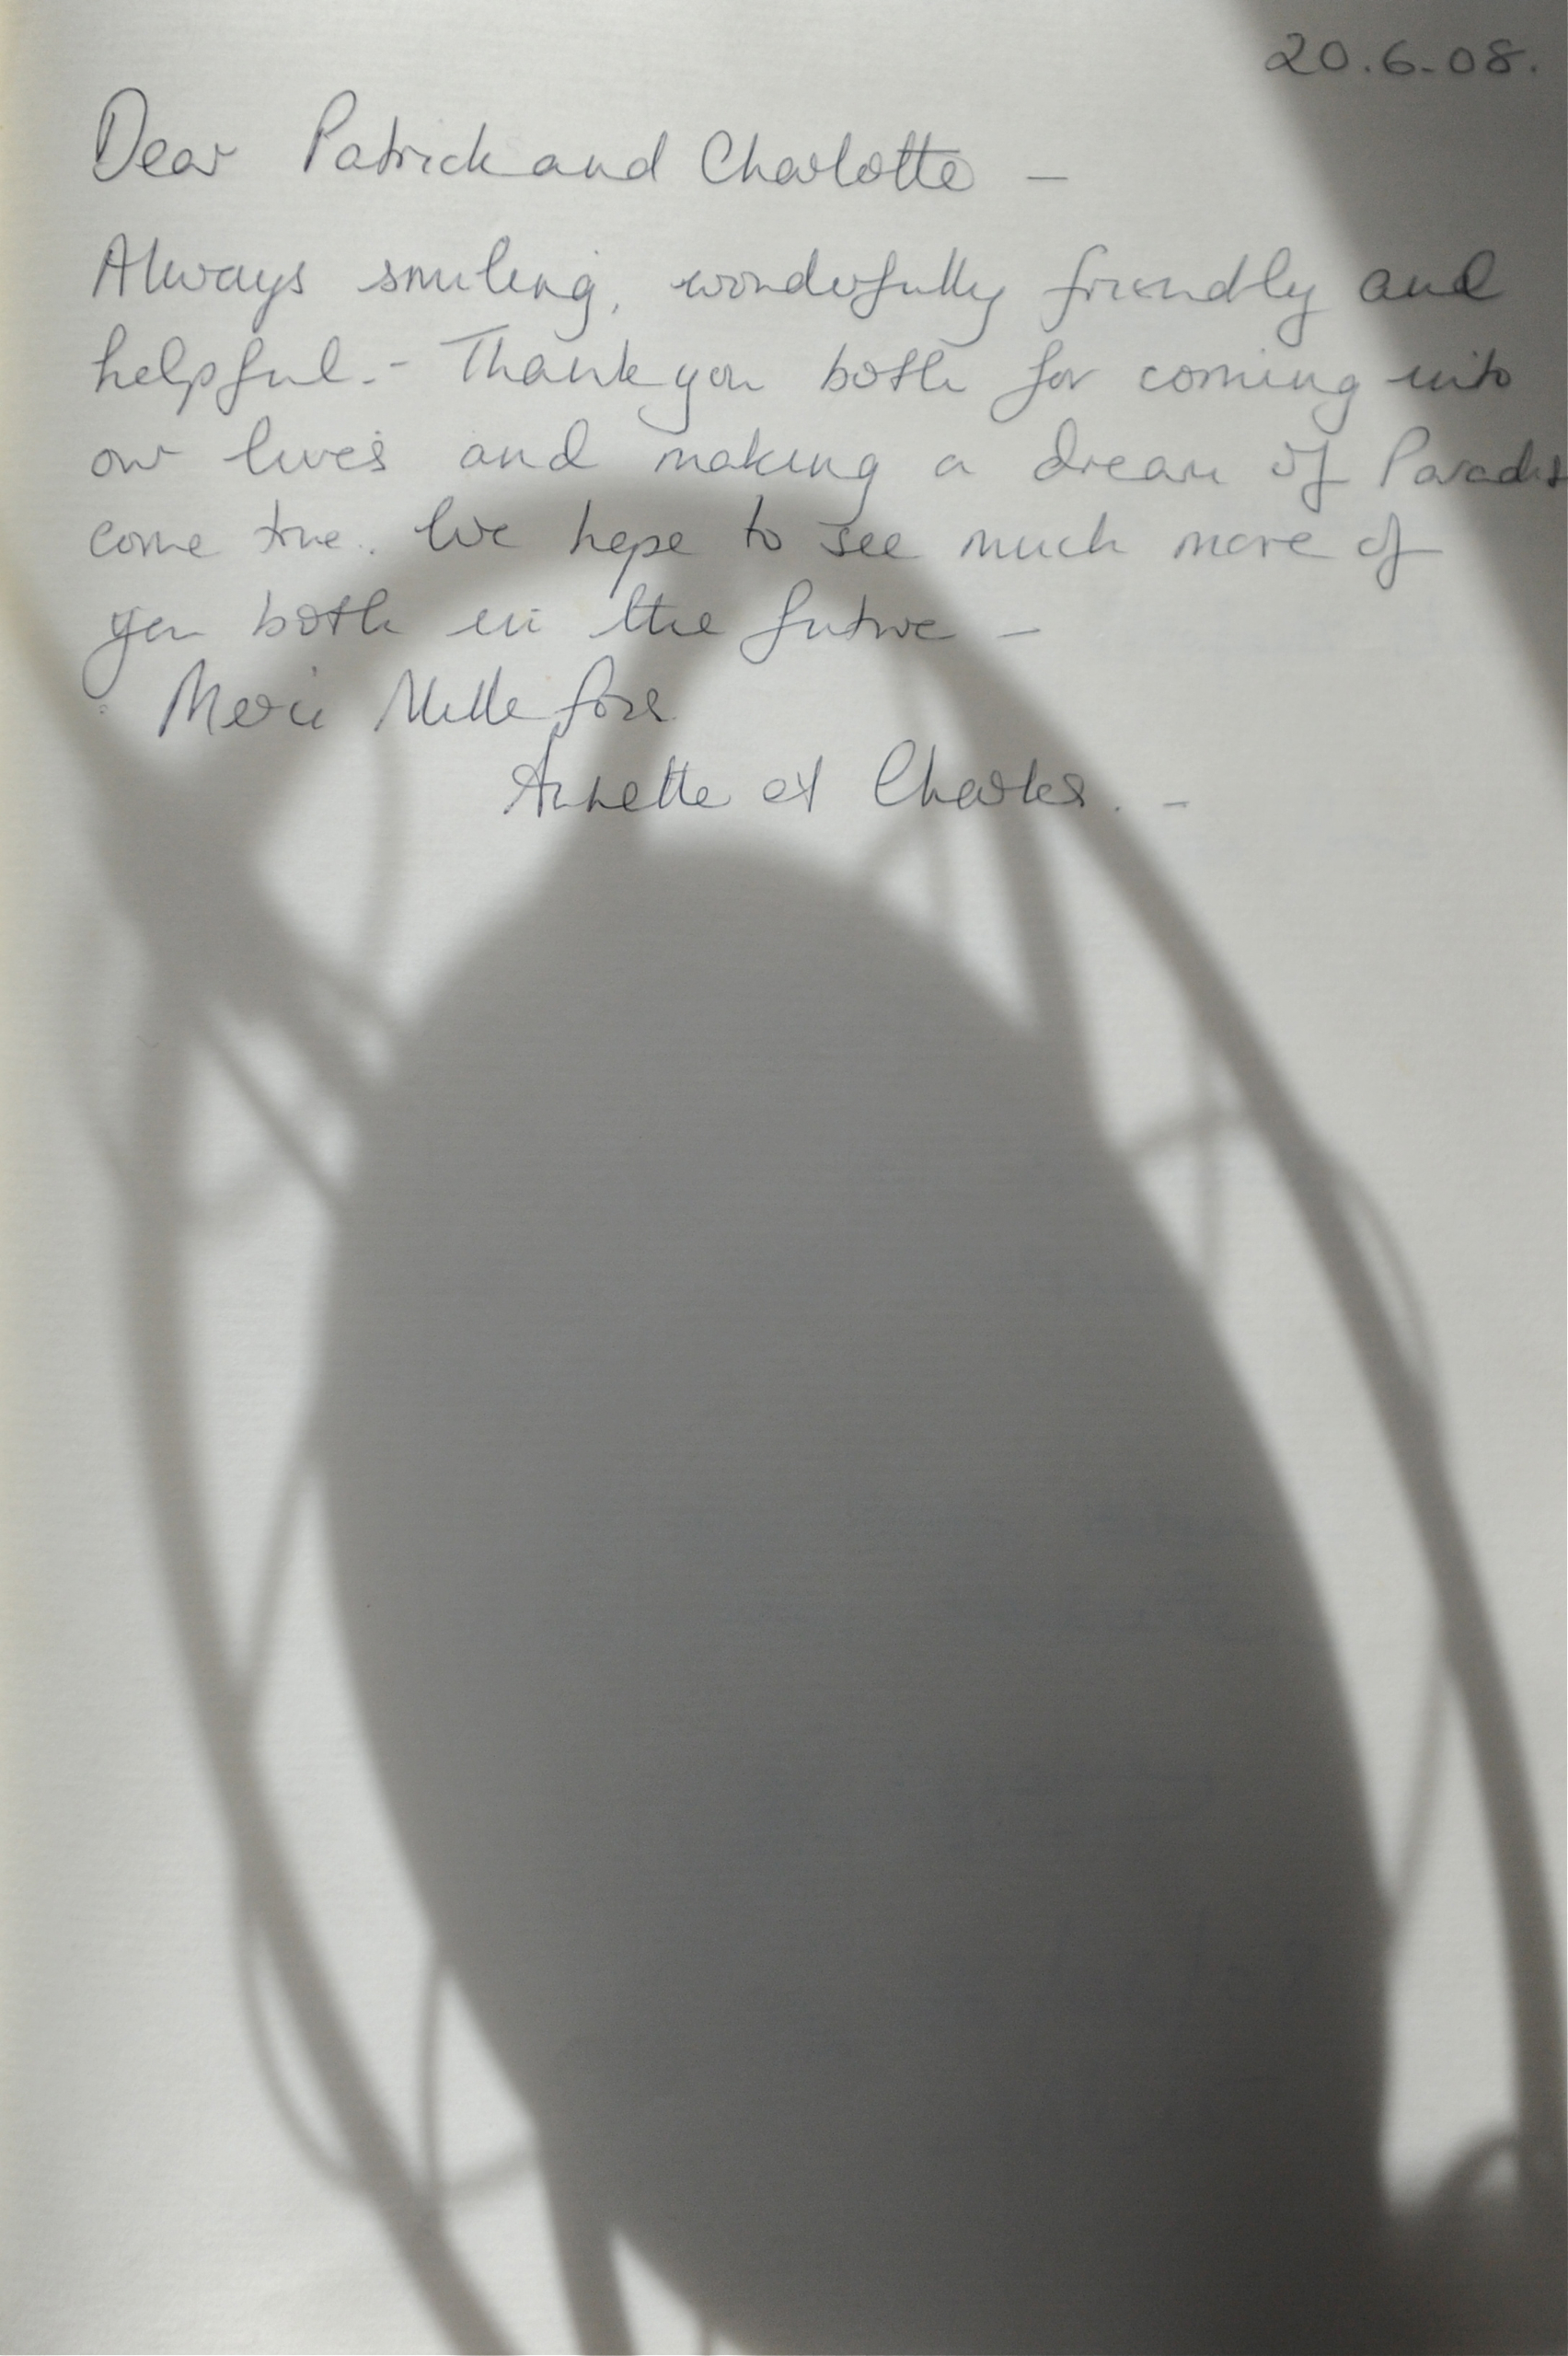 20.6.08.
Dear Patrick and Charlotte —
Always smiling, wonderfully friendly and
helpful. - Thank you both for coming into
our lives and making a dream of Paradis
come true. We hope to see much more of
you both in the future —
Merci Mille fois
Annette et Charles. -